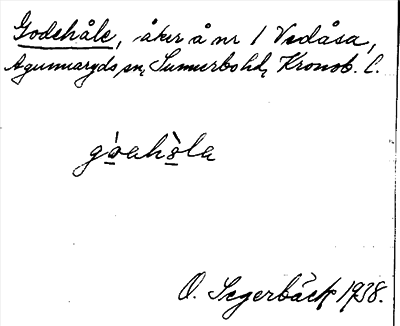 Godehåle, åker å nr 1 Vedåsa,
Agunnaryds sn, Sunnerbo hd, Kronob. l.
gòahòla
O. Segerbäck 1938.